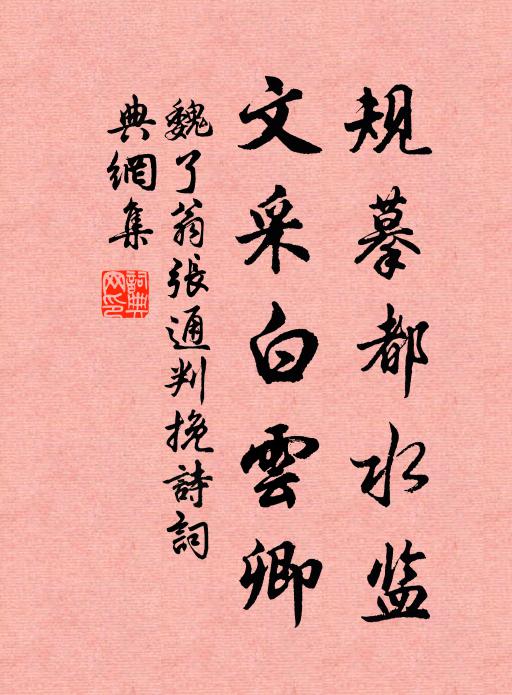 規摹都水监
文采白雲卿
魏了翁張通判挽詩詞
典網集
詞典網印